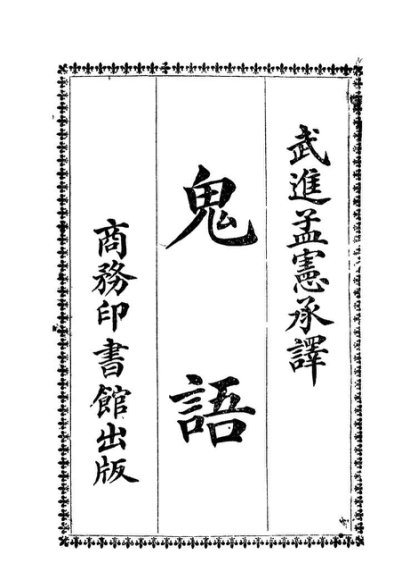 武進孟憲承譯
鬼語
商務印書館出版